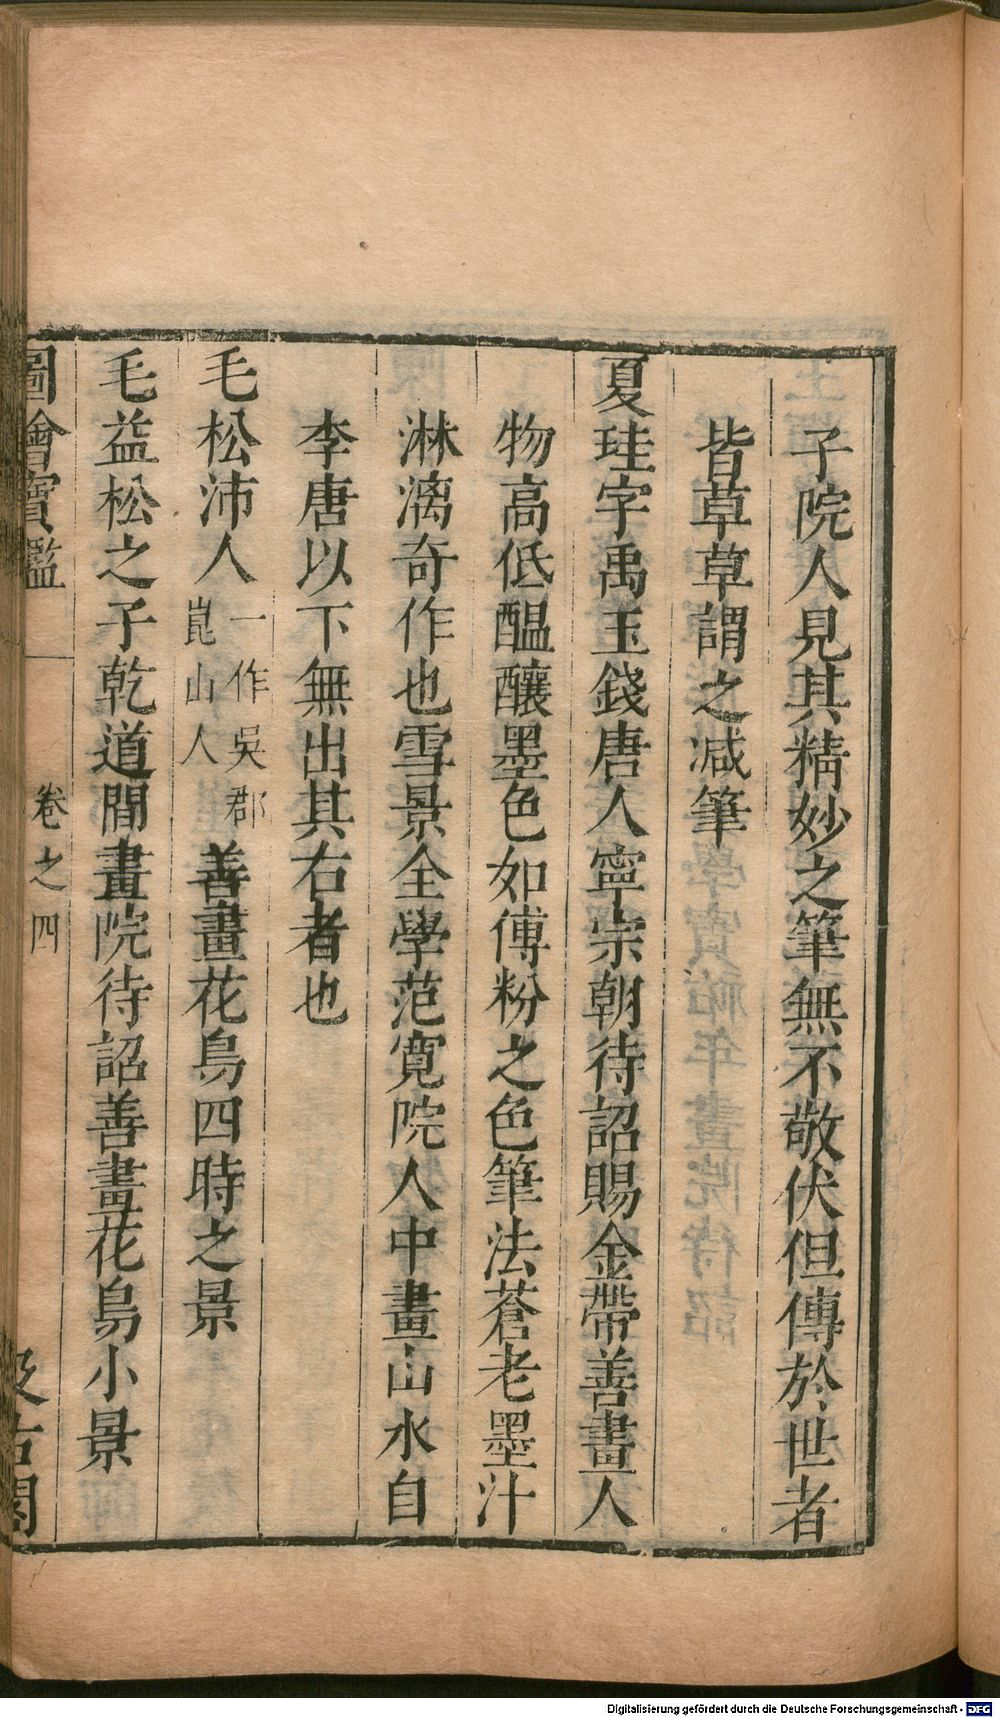 子院人見其精妙之筆無不敬伏但傳於世者
皆草草謂之減筆
夏珪字禹玉錢唐人寧宗朝待詔賜金帶善畫人
物高低醞釀墨色如傅粉之色筆法蒼老墨汁
淋漓奇作也雪景全學范寬院人中畫山水自
李唐以下無出其右者也
毛松沛人一作吳郡崑山人善畫花鳥四時之景
毛益松之子乾道間畫院待詔善畫花鳥小景
圖繪寶鑑 卷之四 汲古閣
Digitalisierung gefördert durch die Deutsche Forschungsgemeinschaft - DFG